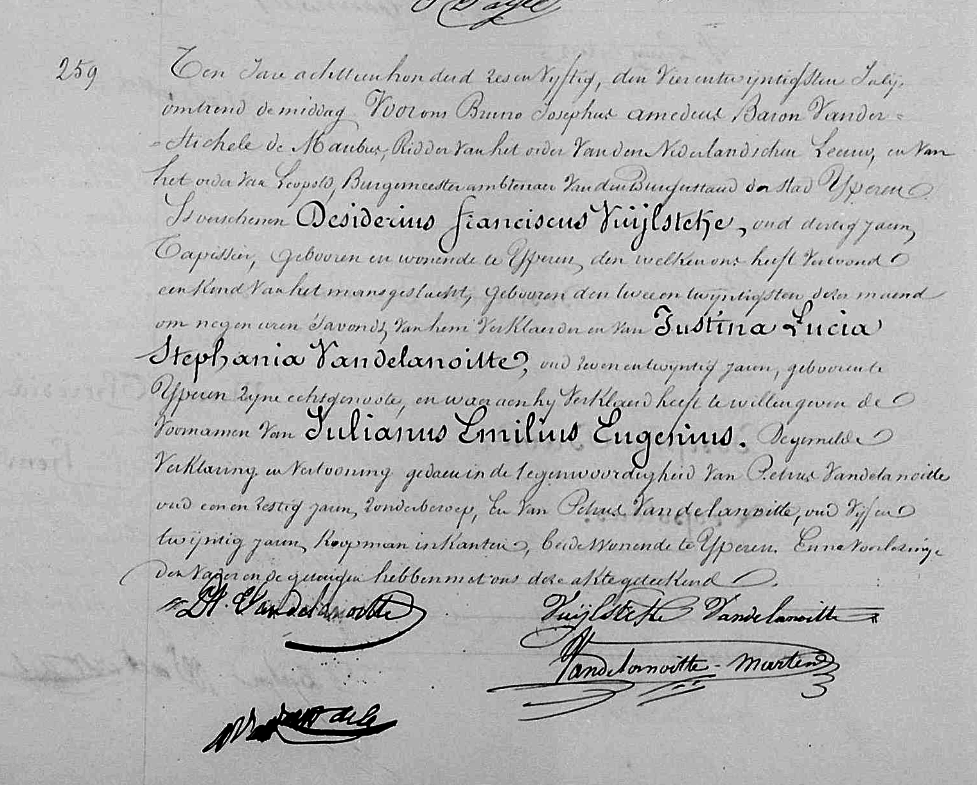 259
Ten Jare achttienhonderd zesenvyftig, den vierentwyntigsten July,
omtrend de middag Voor ons Bruno Josephus amedeus Baron Vander=
=Stichele de Maubus, Ridder van het order van den Nederlandschen Leeuw, en van
het order van Leopold, Burgemeester ambtenaer van den Burgerstand der stad Yperen
Is verschenen Desiderius franciscus Vuijlsteke, oud dertig jaren,
Tapissier, gebooren en wonende te Yperen, den welken ons heeft vertoond
een kind van het mansgeslacht, gebooren den tweeentwyntigsten dezer maend
om negen uren 's avonds, van hem verklaerder en van Justina Lucia
Stephania Vandelanoitte, oud zevenentwyntig jaren, geboorente
Yperen zyne echtgenoote, en waeraen hy verklaerd heeft te willen geven de
Voornamen van Julianus Emilius Eugenius. Degemelde
Verklaring en vertooning gedaen in de tegenwoordigheid van Petrus Vandelanoitte
oud eenenzestig jaren, zonder beroep, En van Petrus Vandelanoitte, oud vyfen
twyntig jaren, koopman in kanten, beide wonende te Yperen. En na voorlezing
den vader en de getuigen hebben met ons deze akte geteekend
Pt. Vandelanoitte
Vuijlsteke Vandelanoitte
Vandelanoitte-Marten